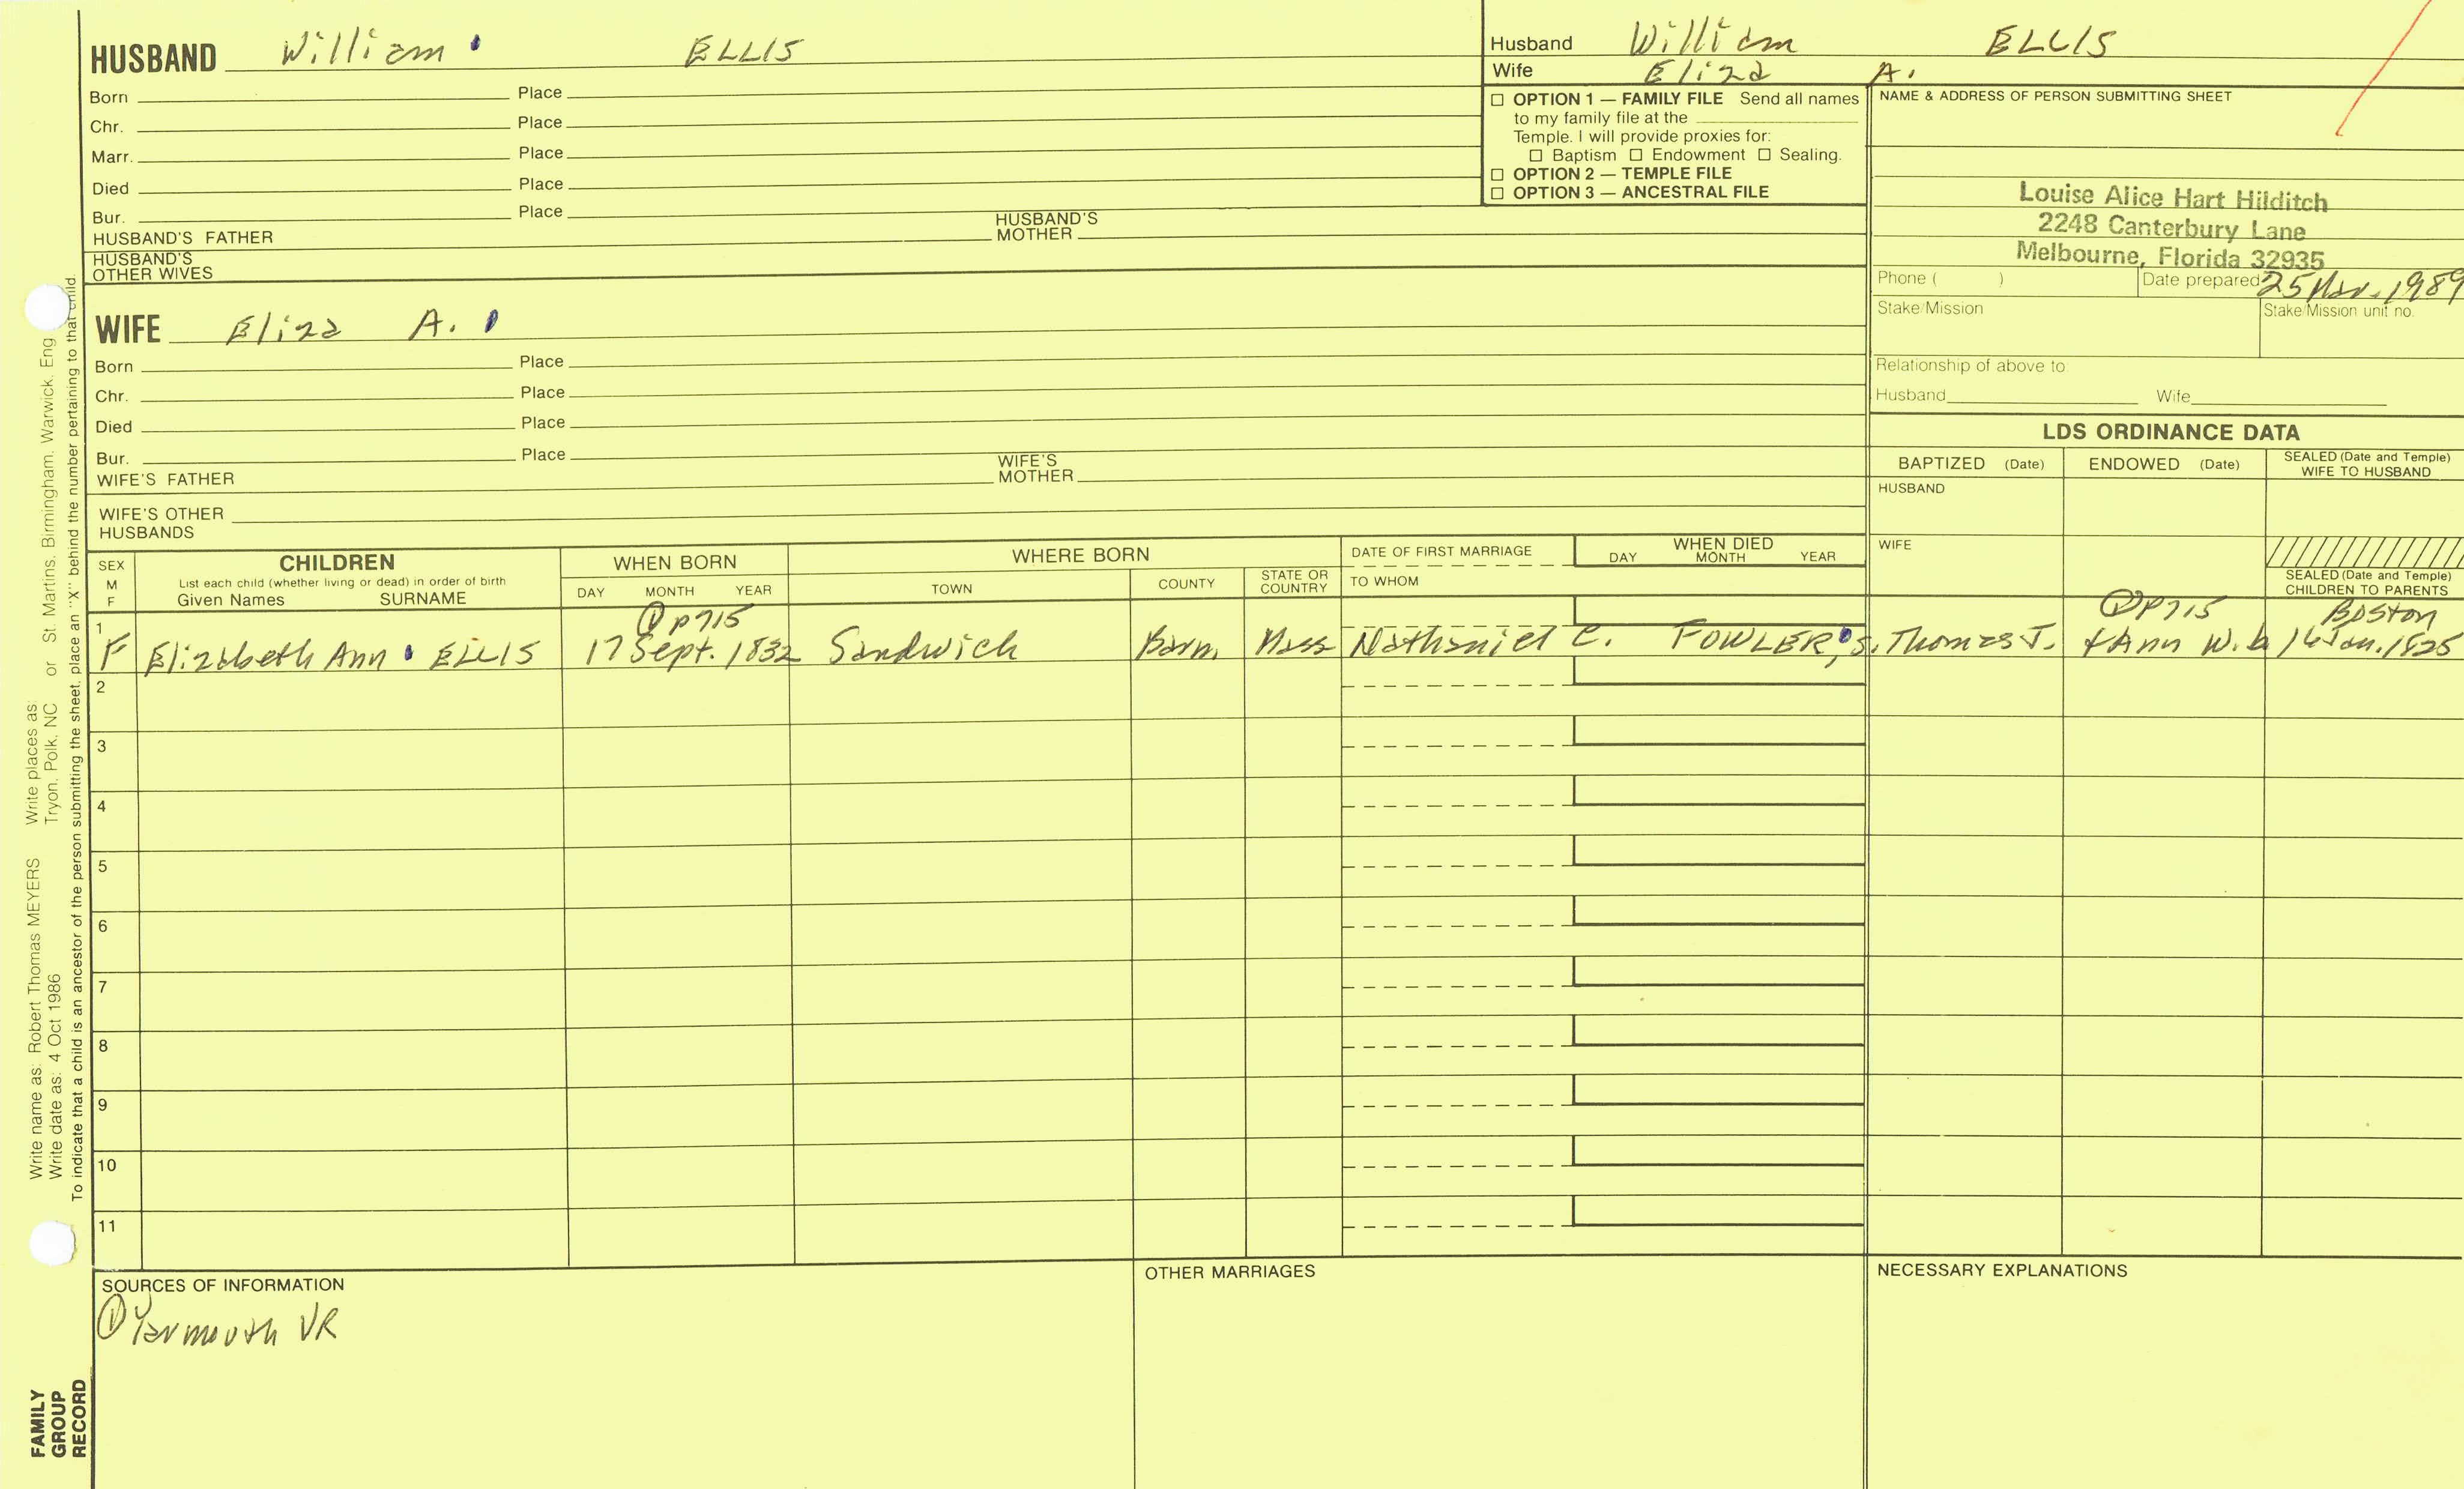 HUSBAND William ELLIS
Born Place
Chr. Place
Marr. Place
Died Place
Bur. Place
HUSBAND'S FATHER HUSBAND'S MOTHER
HUSBAND'S OTHER WIVES
WIFE Eliza A.
Born Place
Chr. Place
Died Place
Bur. Place
WIFE'S FATHER WIFE'S MOTHER
WIFE'S OTHER HUSBANDS
Husband William ELLIS
Wife Eliza A.
☐ OPTION 1 — FAMILY FILE Send all names
to my family file at the
Temple. I will provide proxies for:
☐ Baptism ☐ Endowment ☐ Sealing.
☐ OPTION 2 — TEMPLE FILE
☐ OPTION 3 — ANCESTRAL FILE
NAME & ADDRESS OF PERSON SUBMITTING SHEET
Louise Alice Hart Hilditch
2248 Canterbury Lane
Melbourne, Florida 32935
Phone ( ) Date prepared 25 Mar. 1989
Stake/Mission Stake/Mission unit no.
Relationship of above to
Husband Wife
LDS ORDINANCE DATA
BAPTIZED (Date) ENDOWED (Date) SEALED (Date and Temple) WIFE TO HUSBAND
HUSBAND
WIFE
SEALED (Date and Temple)
CHILDREN TO PARENTS
SEX M F CHILDREN WHEN BORN WHERE BORN DATE OF FIRST MARRIAGE WHEN DIED
List each child (whether living or dead) in order of birth
Given Names SURNAME DAY MONTH YEAR TOWN COUNTY STATE OR COUNTRY TO WHOM DAY MONTH YEAR
① p715 ① P715 Boston
1 F Elizabeth Ann ELLIS 17 Sept. 1832 Sandwich Barn. Mass Nathaniel C. FOWLER, s. Thomas J. & Ann W. b 16 Jan. 1825
2
3
4
5
6
7
8
9
10
11
SOURCES OF INFORMATION
① Yarmouth VR
OTHER MARRIAGES
NECESSARY EXPLANATIONS
Write name as: Robert Thomas MEYERS Write places as:
Write date as: 4 Oct 1986 Tryon, Polk, NC or St. Martins, Birmingham, Warwick, Eng.
To indicate that a child is an ancestor of the person submitting the sheet, place an "X" behind the number pertaining to that child.
FAMILY
GROUP
RECORD